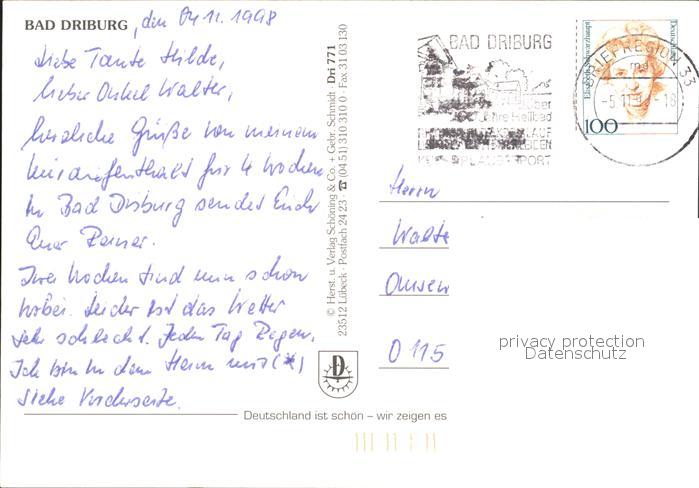 BAD DRIBURG, den 04.11.1998
Liebe Tante Hilde,
lieber Onkel Walter,
herzliche Grüße von meinem
Kuraufenthalt für 4 Wochen
in Bad Driburg sendet Euch
Euer Rainer.
Zwei Wochen sind nun schon
vorbei. Leider ist das Wetter
sehr schlecht. Jeden Tag Regen.
Ich bin in dem Heim mit (*)
siehe Vorderseite.
© Herst. u. Verlag Schöning & Co. + Gebr. Schmidt · Dri 771
23512 Lübeck · Postfach 24 23 · ☎ (04 51) 310 310 0 · Fax 31 03 130
D
Deutschland ist schön – wir zeigen es
BAD DRIBURG
über
Jahre Heilbad
Deutschland
100
BRIEFREGION 33
-5.11.
-18
Herrn
Walte
0115
privacy protection
Datenschutz